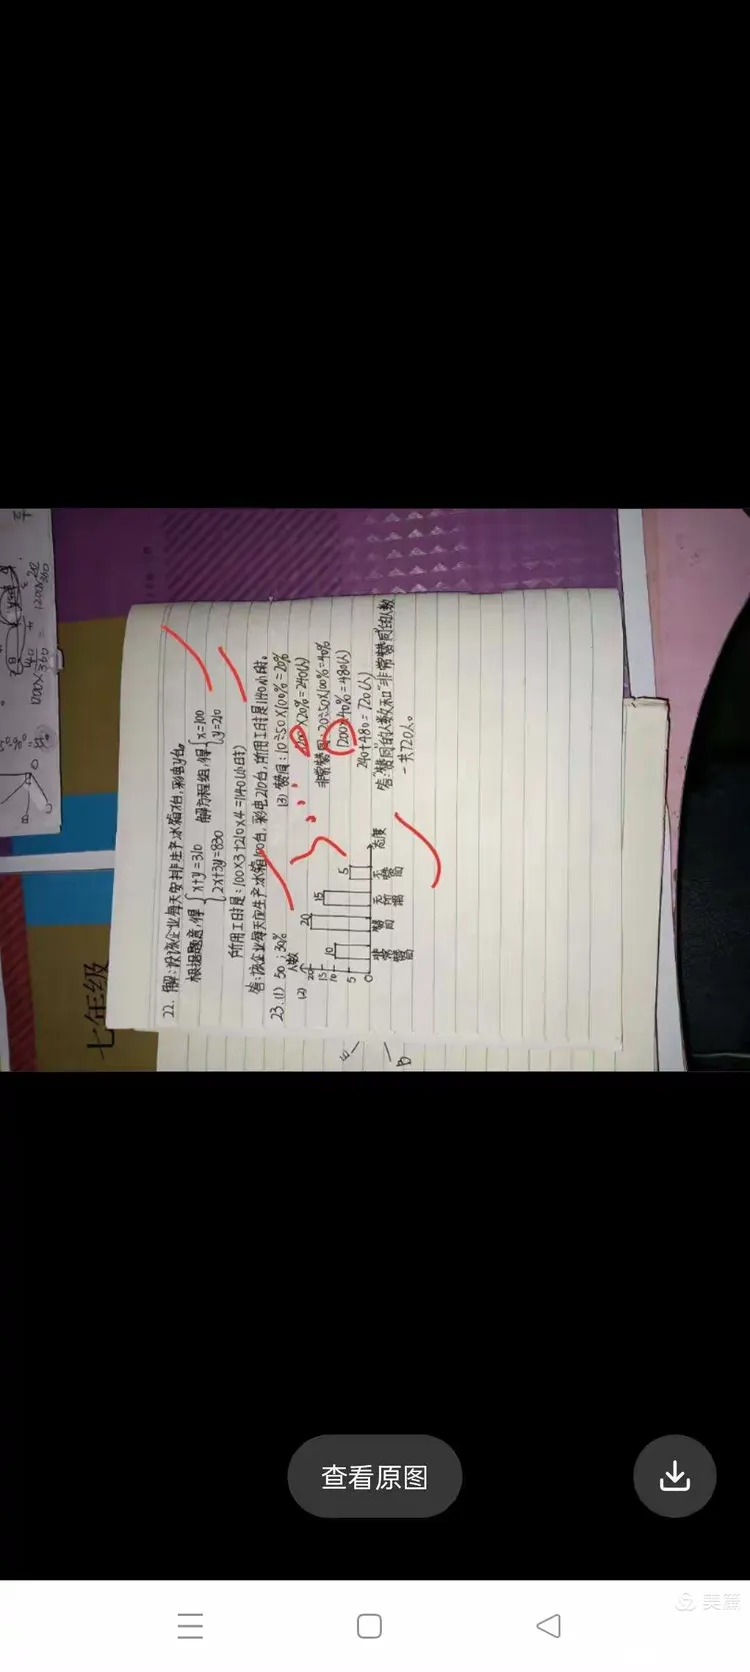 22. 解:设该企业每天安排生产冰箱x台,彩电y台。
根据题意,得 { x+y=310 解方程组,得 { x=100
2x+3y=830 y=210
所用工时是:100×3+210×4=1140(小时)
答:该企业每天应生产冰箱100台,彩电210台,所用工时是1140小时。
23.(1) 50;30%
(2) 人数
20
15
10
5
0
10
20
15
5
态度
非常赞同
赞同
无所谓
不赞同
(3) 赞同:10÷50×100%=20%
1200×20%=240(人)
非常赞同:20÷50×100%=40%
1200×40%=480(人)
240+480=720(人)
答:"赞同"的人数和"非常赞同"的人数
一共720人。
七年级
1200×360
查看原图
美篇